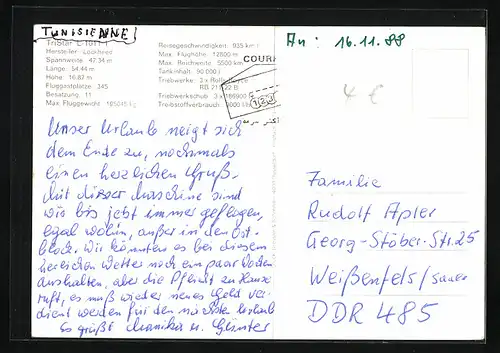 TUNISIENNE
An: 16.11.88
4 €
TriStar L-1011-1
Hersteller: Lockheed
Spannweite: 47,34 m
Länge: 54,44 m
Höhe: 16,87 m
Fluggastplätze: 345
Besatzung: 11
Max. Fluggewicht: 195045 kg
Reisegeschwindigkeit: 935 km
Max. Flughöhe: 12800 m
Max. Reichweite: 5500 km
Tankinhalt: 90 000 l
Triebwerke: 3 x Rolls-Royce
RB 211-22 B
Triebwerkschub: 3 x
Treibstoffverbrauch: 9000 l
COURR
Unser Urlaub neigt sich
dem Ende zu, nochmals
einen herzlichen Gruß.
Mit dieser Maschine sind
wir bis jetzt immer geflogen,
egal wohin, außer in den Ost-
block. Wir könnten es bei diesem
herrlichen Wetter noch ein paar Wochen
aushalten, aber die Pflicht zu Hause
ruft, es muß wieder neues Geld ver-
dient werden für den nächsten Urlaub
Es grüßt Monika u. Günter
Familie
Rudolf Apler
Georg-Stöber-Str. 25
Weißenfels/Saale
DDR 485